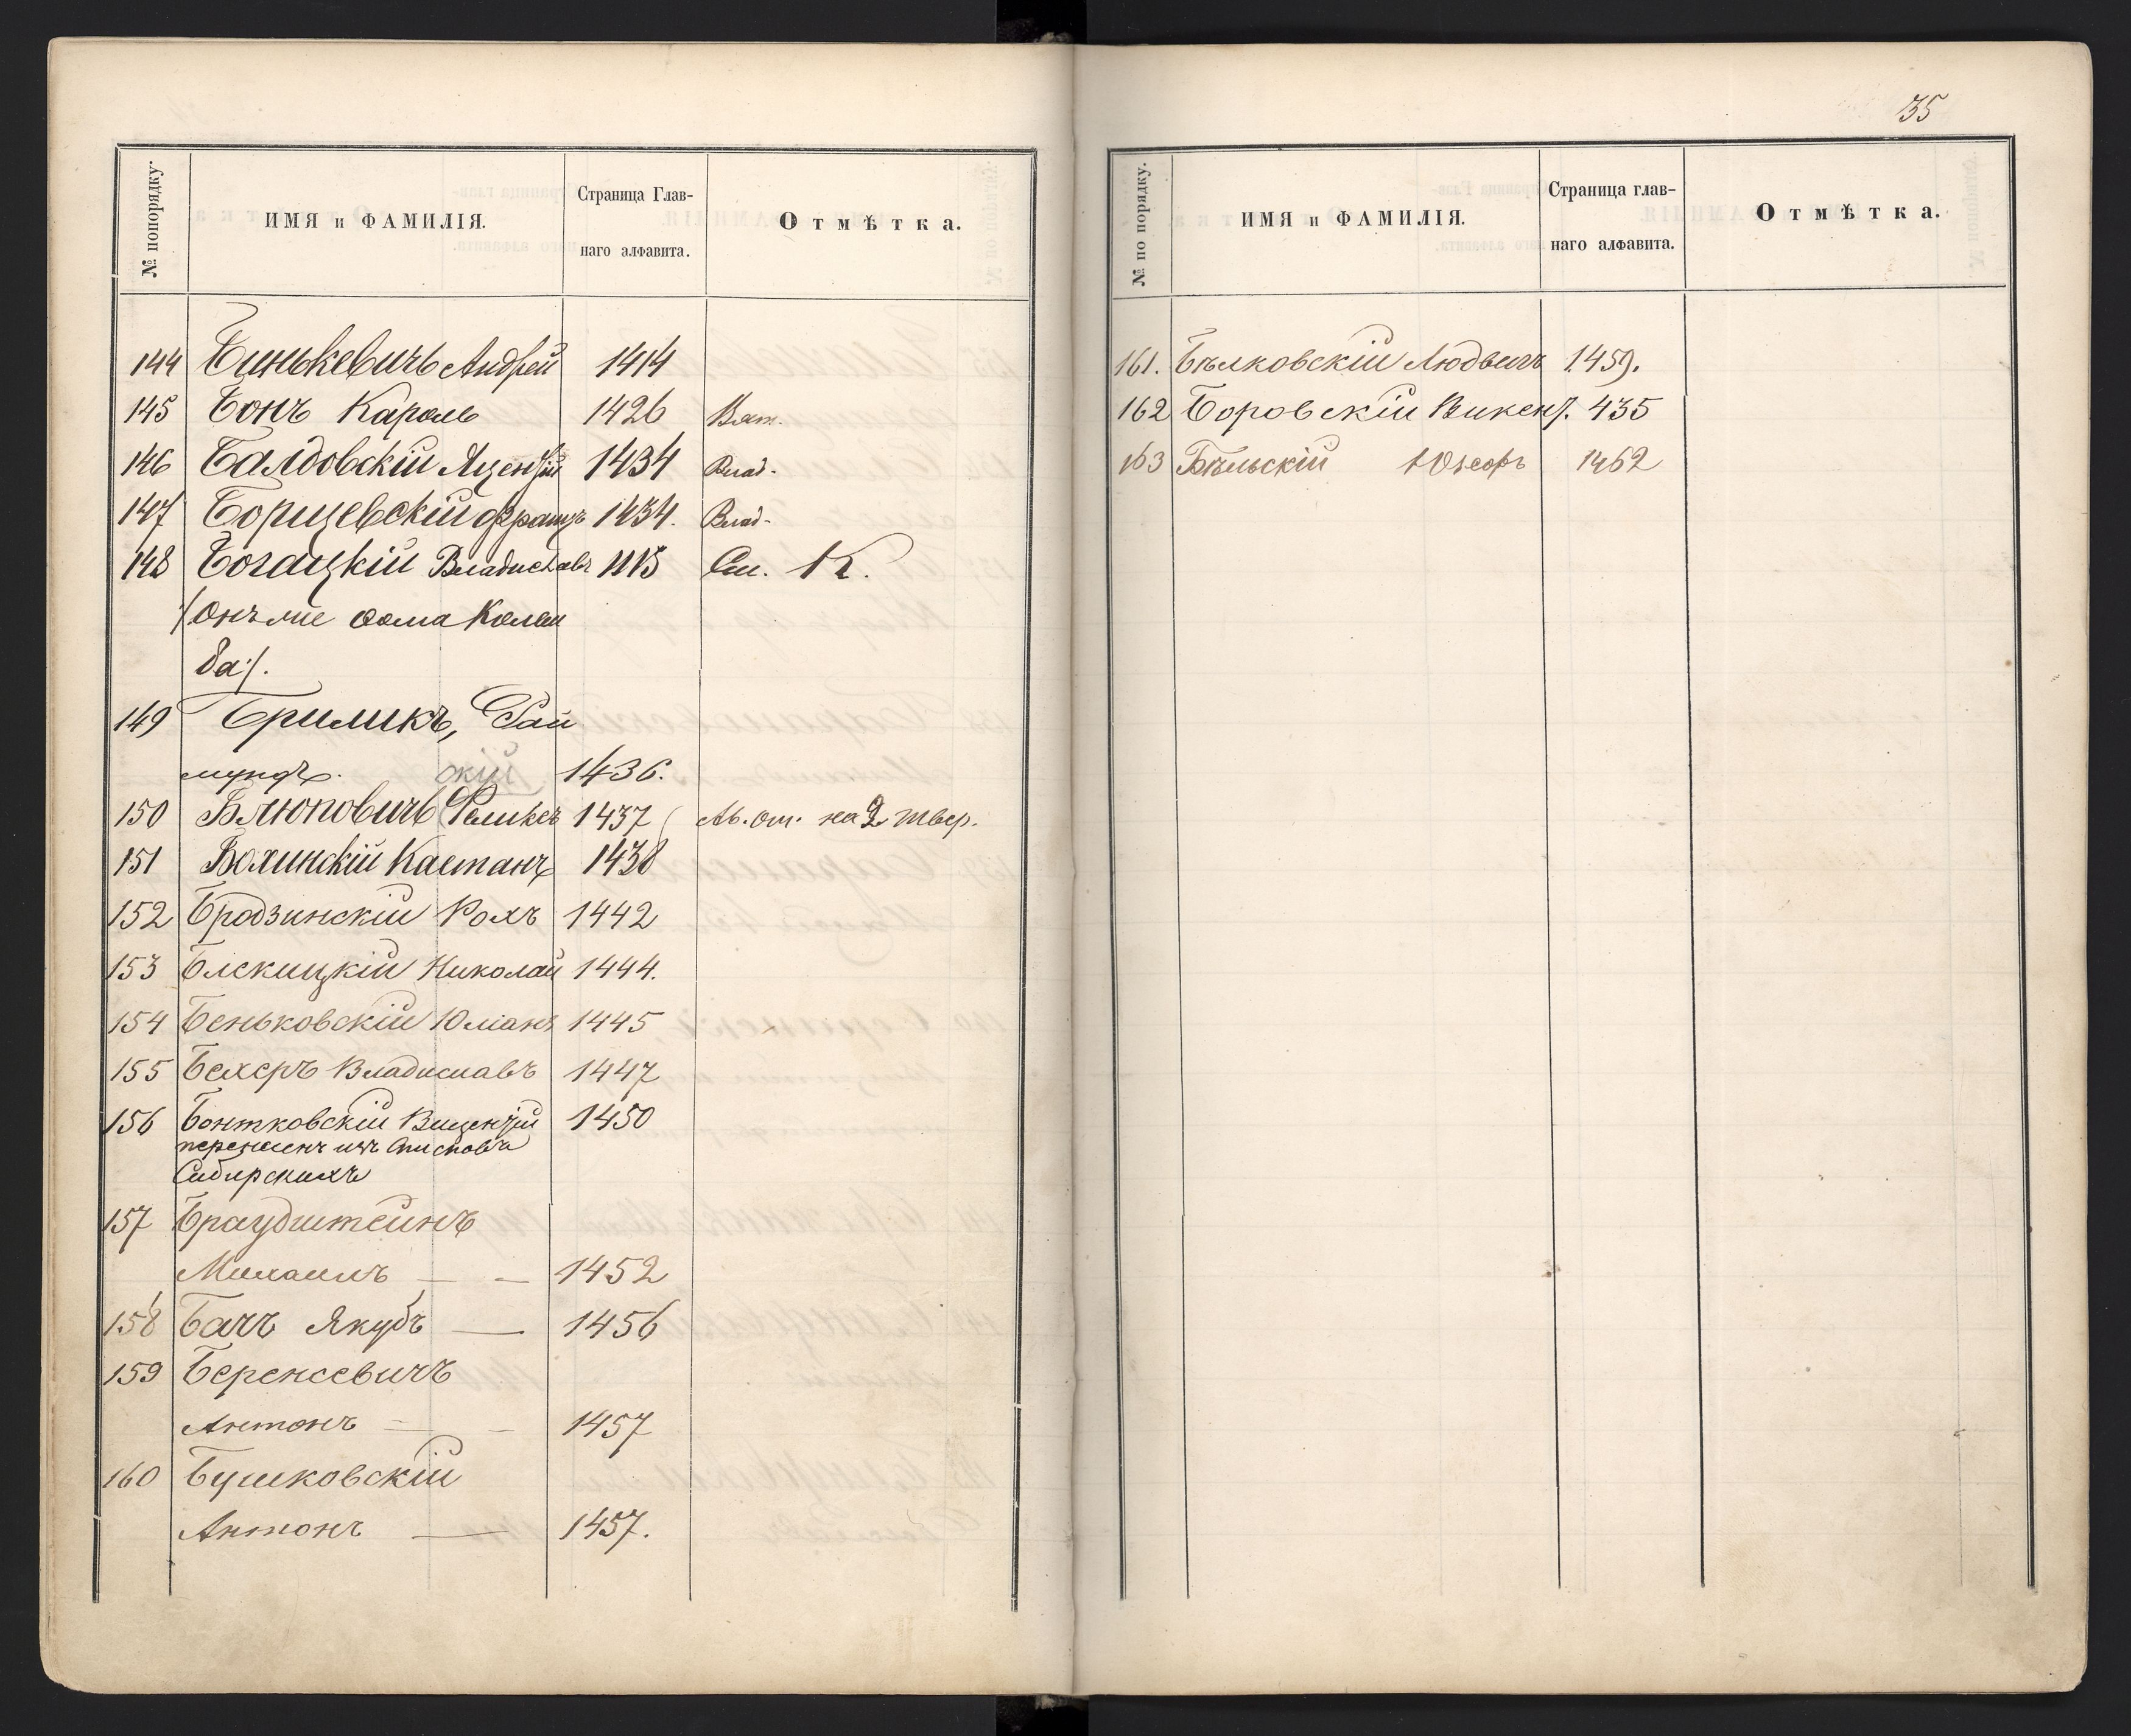 № по порядку.
ИМЯ и ФАМИЛІЯ.
Страница Глав-
наго алфавита.
Отмѣтка.
144 Бинькевичъ Андрей 1414
145 Бонъ Кароль 1426 Вят.
146 Балдовскій Яцентій 1434 Влад.
147 Борщевскій Францъ 1434. Влад.
148 Богацкій Владиславъ 1115 См. К.
/онъ же Фома Колен
да/.
149 Бриликъ, Рай
мундъ. 1436.
150 Блюповичъ Феликсъ 1437 Ал. от. на 2 твер.
151 Бохинскій Каетанъ 1438
152 Бродзинскій Рохъ 1442
153 Блскицкій Николай 1444.
154 Беньковскій Юліанъ 1445
155 Бехеръ Владиславъ 1447
156 Бонтковскій Виценцій 1450
перенесенъ изъ Списковъ
Сибирскихъ
157 Браудштейнъ
Михаилъ — — 1452
158 Бачъ Якубъ — 1456
159 Беренсевичъ
Антонъ — — 1457
160 Бушковскій
Антонъ — 1457.
35
№ по порядку.
ИМЯ и ФАМИЛІЯ.
Страница глав-
наго алфавита.
Отмѣтка.
161. Бѣлковскій Людвигъ 1459.
162 Боровскій Викент. 435
163 Бѣльскій Юзефъ 1462